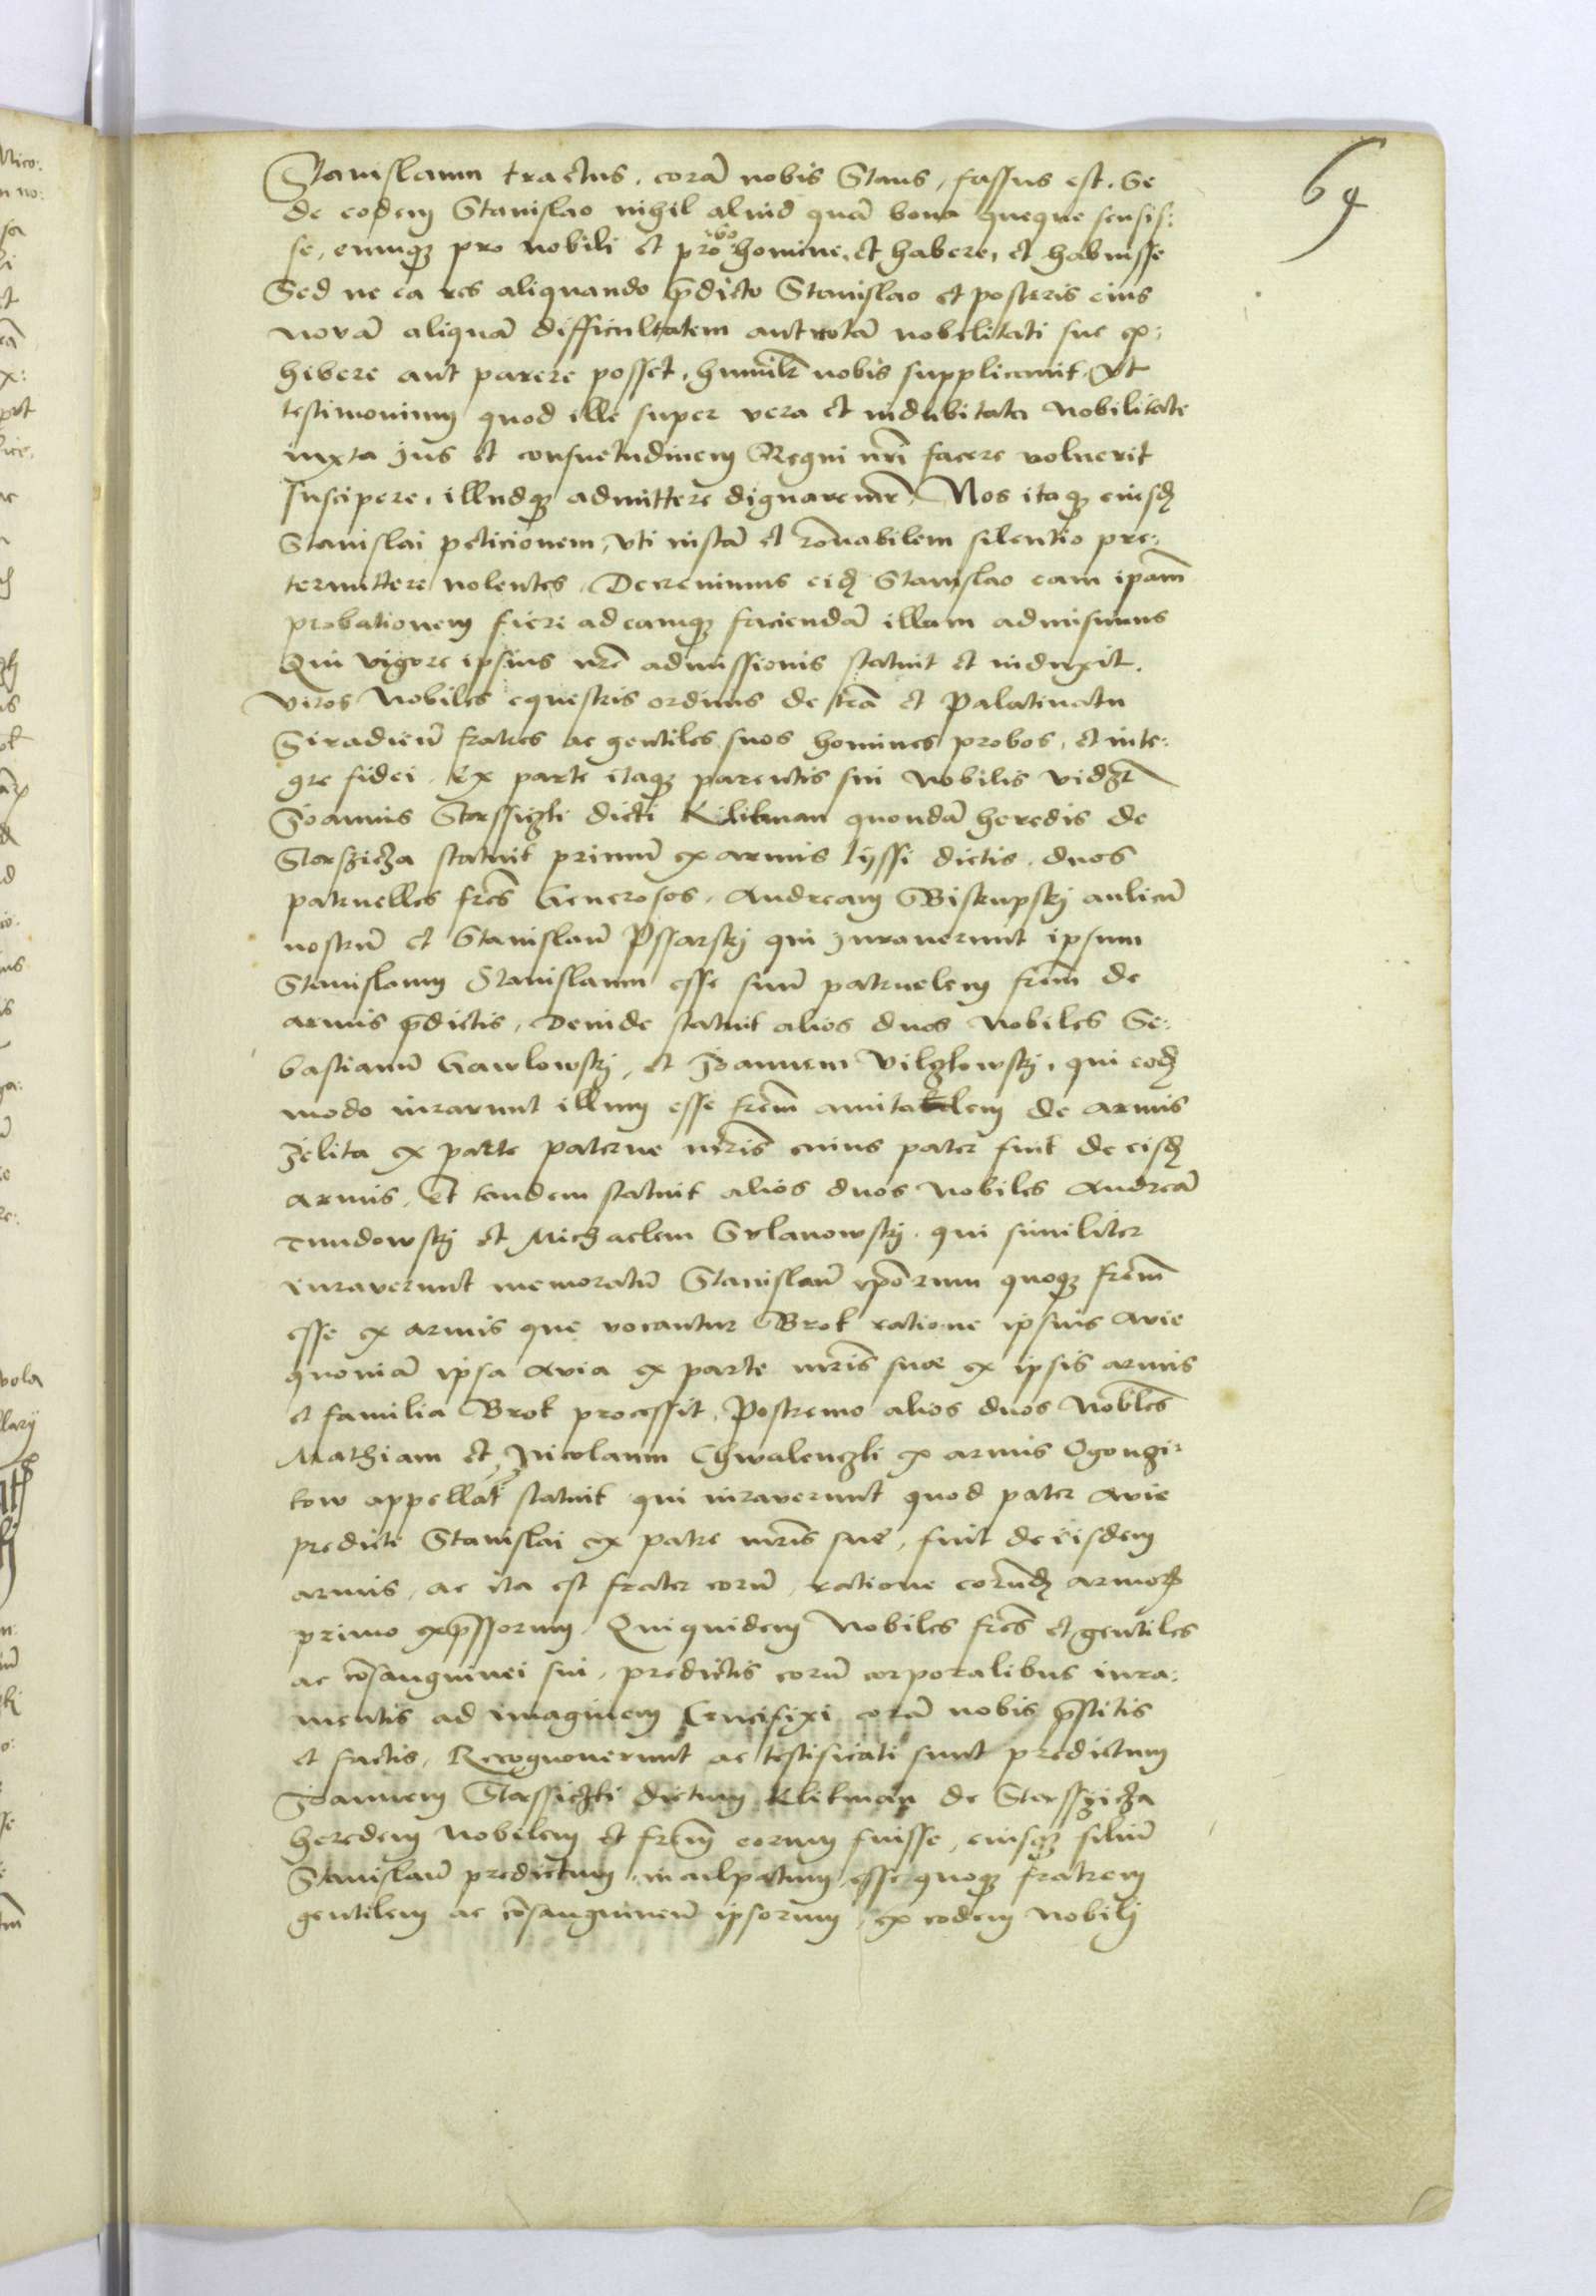 69
Stanislaum tractus, corā nobis Stans, fassus est, Se
de eodem Stanislao nihil aliud quā bona queque sensis:
se, eumqꝫ pro nobili et probo homine, et habere, et habuisse
Sed ne ea res aliquando p̄dicto Stanislao et posteris eius
novā aliquā difficultatem aut notā nobilitati sue ex:
hibere aut parere posset, humilr̄ nobis supplicavit, Vt
testimonium quod ille super vera et indubitata Nobilitate
iuxta jus et consuetudinem Regni nr̄i facere voluerit
suscipere, illudqꝫ admittere dignaremr̄. Nos itaqꝫ eiusdꝫ
Stanislai peticionem, vti iustā et rōnabilem silentio pre:
termittere nolentes, Decrevimus eidꝫ Stanislao eam ip̄am
probationem fieri ad eamqꝫ faciendā illum admisimus
Qui vigore ipsius nr̄e admissionis statuit et induxit,
Viros Nobiles equestris ordinis de terā et Palatinatu
Siradien̄ fratres ac gentiles suos homines probos, et inte:
gre fidei. Ex parte itaqꝫ parentis sui Nobilis vidꝫlt
Joannis Starssiczki dicti Klikman quondā heredis de
Starszicza statuit primū ex armis lyssi dictis, duos
patruelles fr̄es Generosos, Andream Biskupskj aulicū
nostrū et Stanislaū Pssarskj qui juraverunt ipsum
Stanislaum Stanislaum esse suū patruelem fr̄em de
armis p̄dictis, Deinde statuit alios duos Nobiles Se:
bastianū Gawlowskj, et Joannem Vilxlowskj, qui eodꝫ
modo iurarunt illum esse fr̄em amitalem de armis
Jelita ex parte paterne mr̄is cuius pater fuit de eisdꝫ
armis, et tandem statuit alios duos Nobiles Andreā
Tmudowskj et Michaelem Gvlanowskj, qui similiter
iuraverunt memoratū Stanislaū ip̄orum quoqꝫ fr̄em
esse ex armis que vocantur Brok ratione ipsius avie
quoniā ipsa avia ex parte mr̄is sue ex ipsis armis
et familia Brok processit, Postremo alios duos Nobl̄es
Mathiam et Nicolaum Chwalenczki ex armis Ogongi:
kow appellat̄ statuit qui iuraverunt quod pater avie
predicti Stanislai ex patre mr̄is sue, fuit de eisdem
armis, ac ita est frater eorū, ratione eorundꝫ armoꝝ
primo exp̄ssorum. Quiquidem Nobiles fr̄es et gentiles
ac cōsanguinei sui, predictis eorū corporalibus iura:
mentis ad imaginem Crucifixi corā nobis p̄stitis
et factis, Recognoverunt ac testificati sunt predictum
Joannem Starssiczki dictum Klikman de Starssyicza
heredem Nobilem et fr̄em eorum fuisse, eiusqꝫ filiū
Stanislaū predictum, inculpatum esse quoqꝫ fratrem
gentilem ac cōsanguineū ipsorum, ex eodem Nobilj